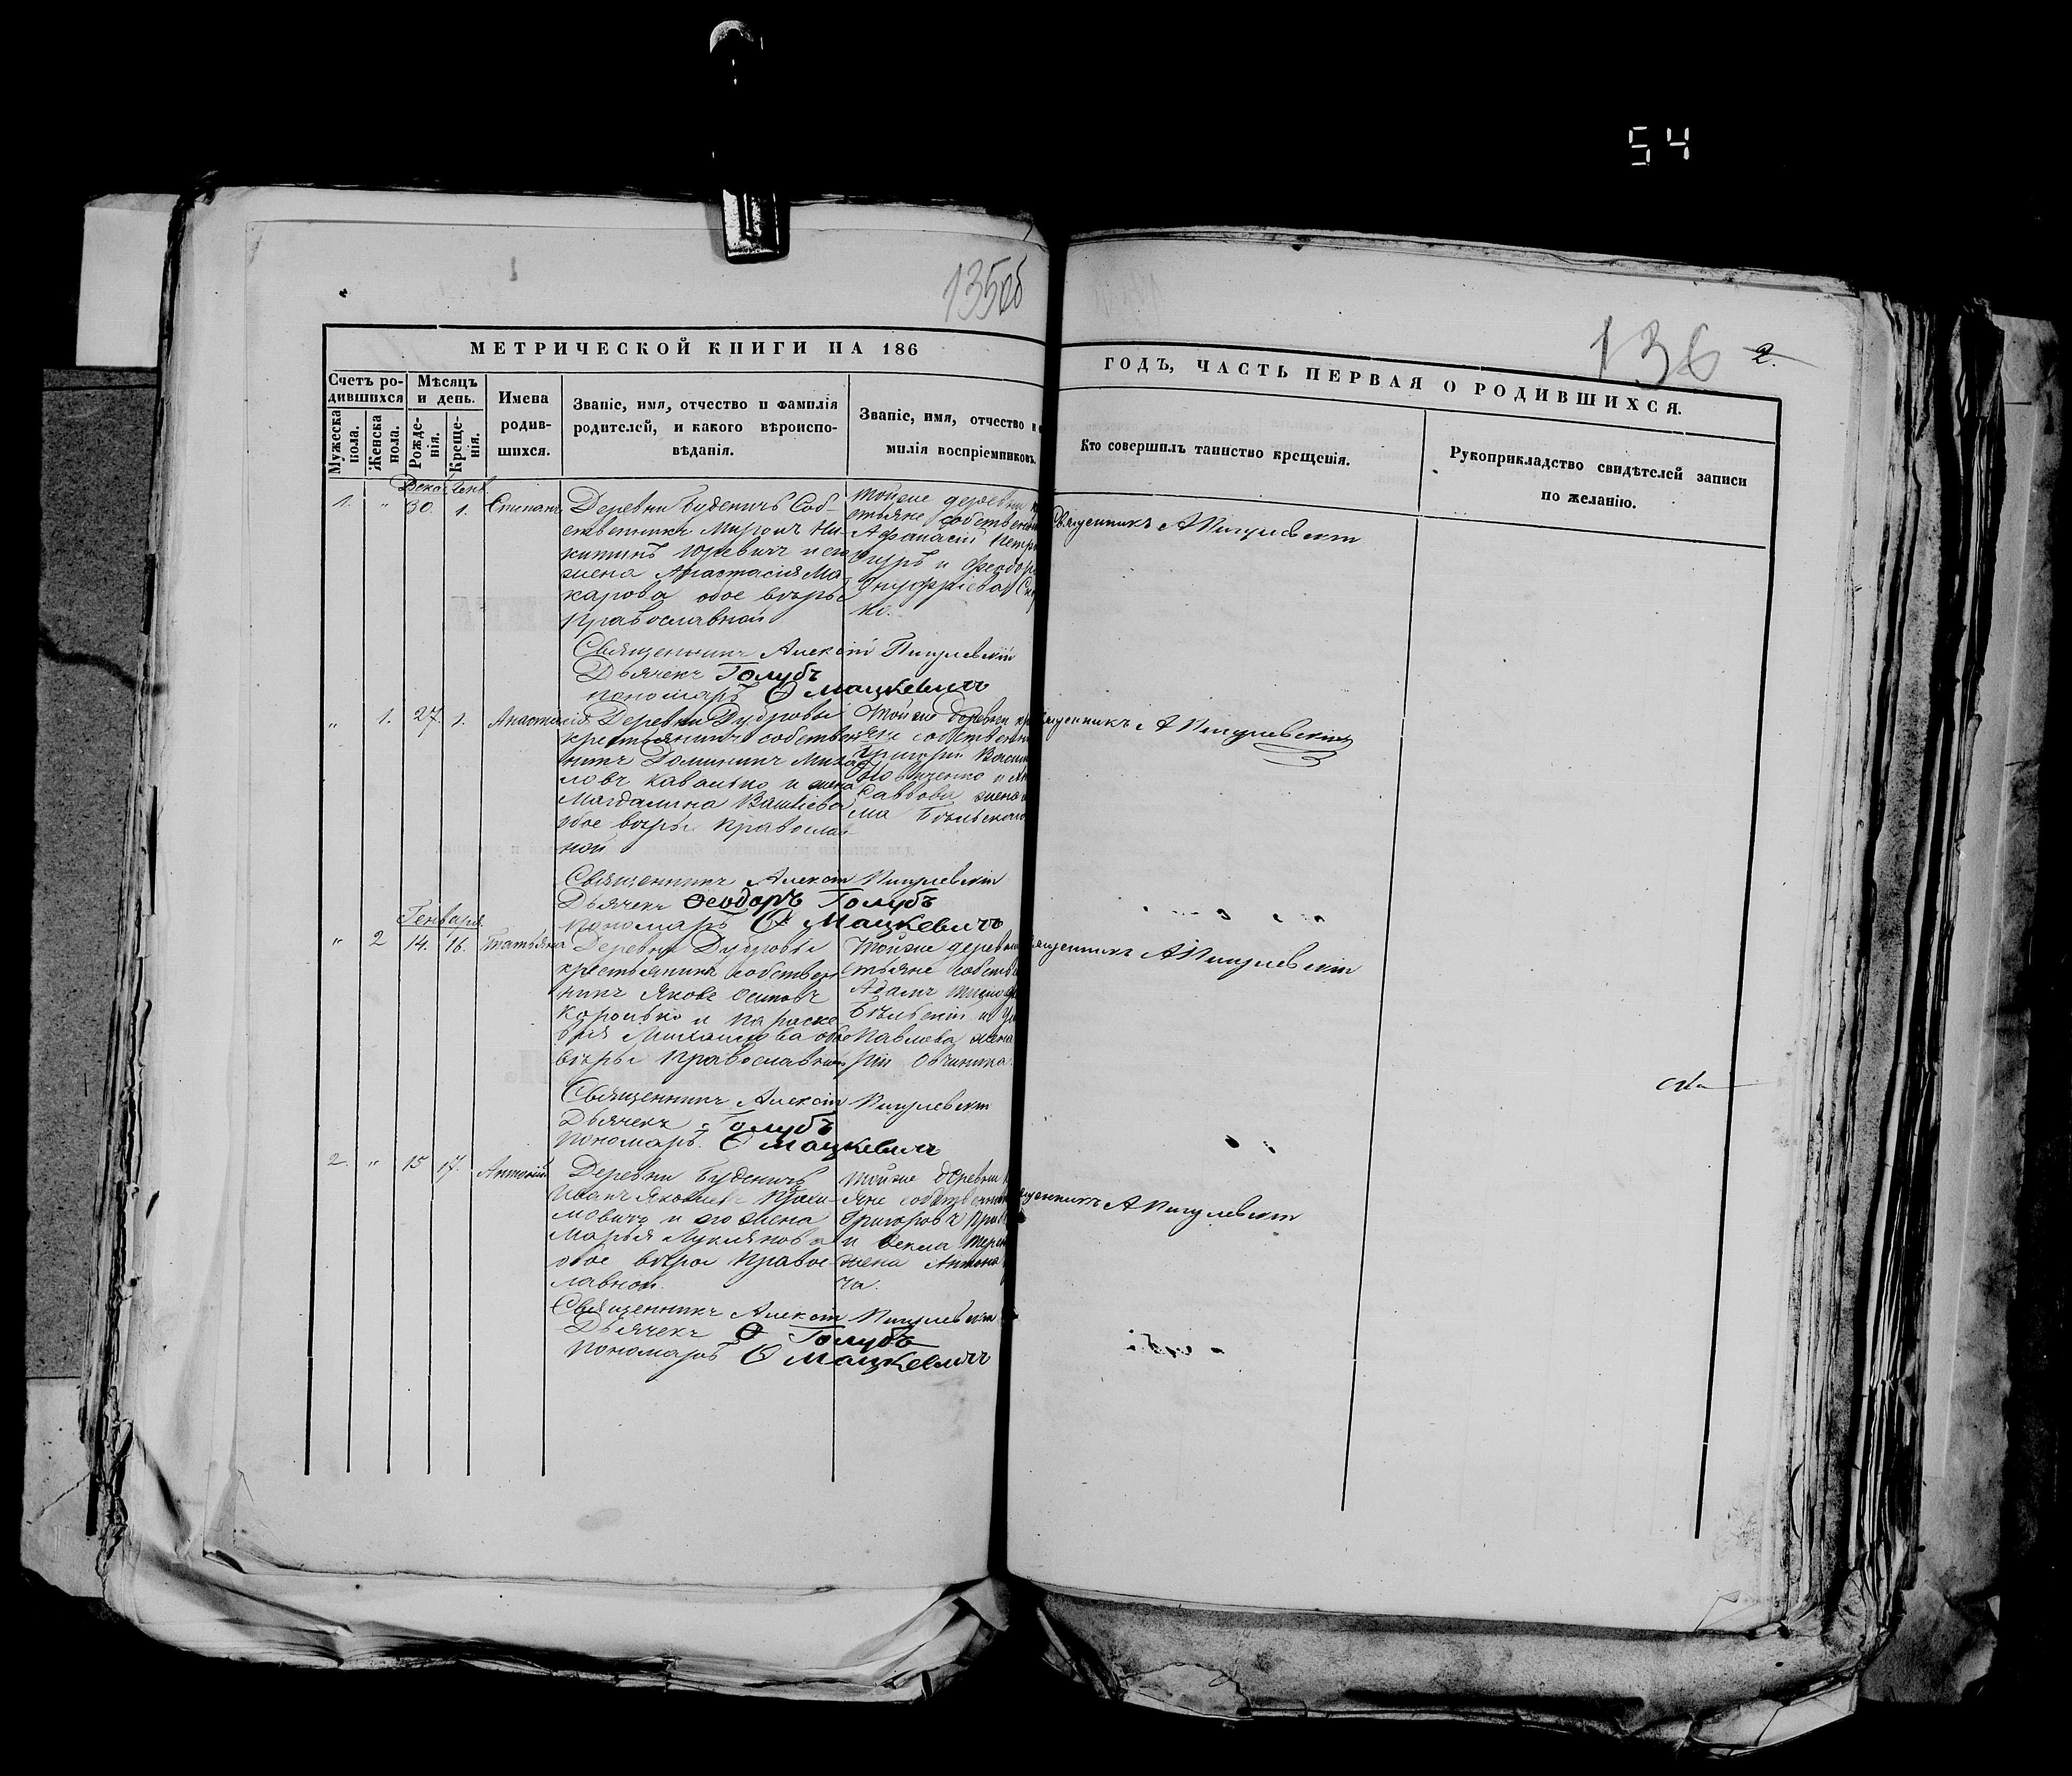 54
135об
136 2.
МЕТРИЧЕСКОЙ КНИГИ НА 186
ГОДЪ, ЧАСТЬ ПЕРВАЯ О РОДИВШИХСЯ.
Счетъ ро-
дившихся
Мужеска пола.
Женска пола.
Мѣсяцъ
и день.
Рожде-
нія.
Креще-
нія.
Имена
родив-
шихся.
Званіе, имя, отчество и фамилія
родителей, и какого вѣроиспо-
вѣданія.
Званіе, имя, отчество и
милія воспріемниковъ.
Кто совершилъ таинство крещенія.
Рукоприкладство свидѣтелей записи
по желанію.
1. " 30. 1. Степанъ
Деревни Буденичъ Соб-
ственникъ Миронъ Ни-
китинъ Юревичъ и его
жена Анастасія Ма-
карова обое вѣры
Православной
Тойже деревни
стьяне собственни
Афанасій Петр
и Феодор
Онуфріева
ко.
Священникъ А Пигулевскій
Священникъ Алексій Пигулевскій
Дьячекъ Голубъ
пономарь Ѳ Мацкевичъ
" 1. 27. 1. Анастасія
Деревни Дубровы
крестьянинъ собствен
никъ Доминикъ Михай
ловъ и жена
Магдалина
обое вѣры Православ
ной
Тойже деревни кр
яне собственни
Григорій Васил
и
Саввова жена
ма Бѣльскаго
щенникъ А Пигулевскій
Священникъ Алексій Пигулевскій
Дьячекъ Ѳеодоръ Голубъ
пономарь Ѳ Мацкевичъ
Генваря
" 2 14. 16. Татьяна
Деревни Дубровы
крестьянинъ собствен
никъ Яковъ Осиповъ
Королько и Параске
вія Михайлова обое
вѣры Православной
Тойже деревни
стьяне собств
Адамъ
Бѣльскій и
Павлова жена
рія Овчинника
щенникъ А Пигулевскій
Священникъ Алексій Пигулевскій
Дьячекъ Голубъ
Пономарь Ѳ Мацкевичъ
2. " 15 17. Антоній
Деревни Буденичъ
Иванъ Яковлевъ
мовичъ и его жена
Марья Лукьянова
обое вѣры Правос
лавной.
Тойже деревни
яне собственни
Григоровъ
и Ѳекла
жена Антона
ча.
щенникъ А Пигулевскій
Священникъ Алексій Пигулевскій
Дьячекъ Ѳ Голубъ
Пономарь Ѳ Мацкевичъ